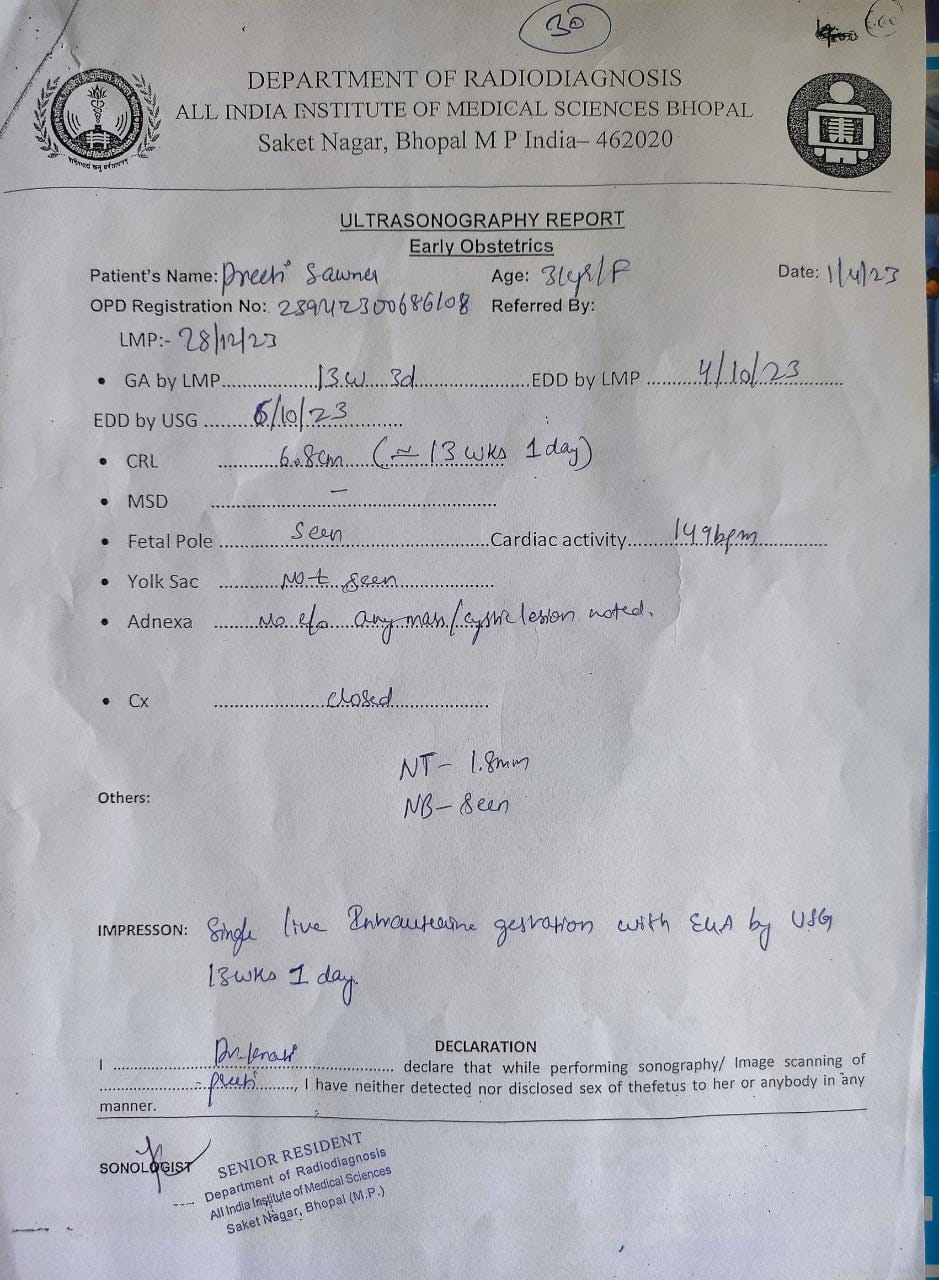 30
DEPARTMENT OF RADIODIAGNOSIS
ALL INDIA INSTITUTE OF MEDICAL SCIENCES BHOPAL
Saket Nagar, Bhopal M P India– 462020
ULTRASONOGRAPHY REPORT
Early Obstetrics
Patient's Name: Preeti Sawner Age: 31yr/F Date: 1/4/23
OPD Registration No: Referred By:
LMP:- 28/12/23
• GA by LMP 13w 3d EDD by LMP 4/10/23
EDD by USG 6/10/23
• CRL 6.8cm (≈ 13 wks 1 day)
• MSD –
• Fetal Pole Seen Cardiac activity 149bpm
• Yolk Sac Not seen
• Adnexa No e/o any mass/cystic lesion noted.
• Cx closed
NT- 1.8mm
Others:
NB- Seen
IMPRESSON: Single live Intrauterine gestation with EGA by USG
13wks 1 day.
DECLARATION
I Dr. declare that while performing sonography/ Image scanning of
preeti, I have neither detected nor disclosed sex of thefetus to her or anybody in any
manner.
SONOLOGIST
SENIOR RESIDENT
Department of Radiodiagnosis
All India Institute of Medical Sciences
Saket Nagar, Bhopal (M.P.)